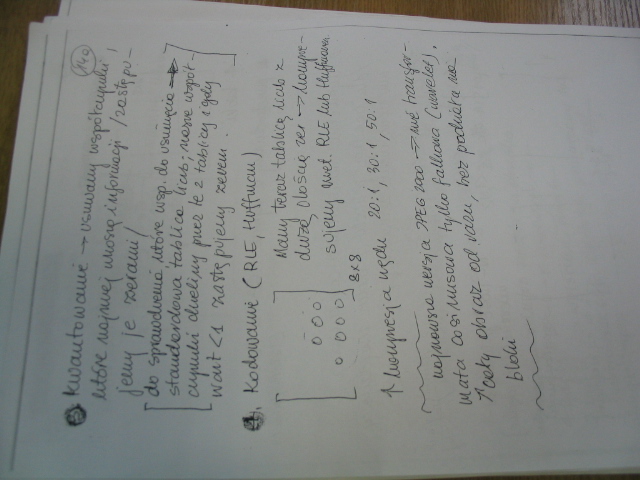 ③. Kwantowanie → usuwamy współczynniki
które najmniej wnoszą informacji / zastępu-
jemy je zerami /
[do sprawdzenia które wsp. do usunięcia →
standardowa tablica liczb; nasze współ-
czynniki dzielimy przez te z tablicy i gdy
wart < 1 zastępujemy zerem.]
④. Kodowanie (RLE, Huffman)
Mamy teraz tablicę liczb z
dużą ilością zer → kompre-
sujemy met. RLE lub Huffmana
0 0 0
0 0 0 0
8x8
↑ kompresja rzędu 20:1, 30:1, 50:1
najnowsza wersja JPEG 2000 → nie transfor-
mata cosinusowa tylko falkowa (wavelet).
↑ cały obraz od razu, bez podziału na
bloki